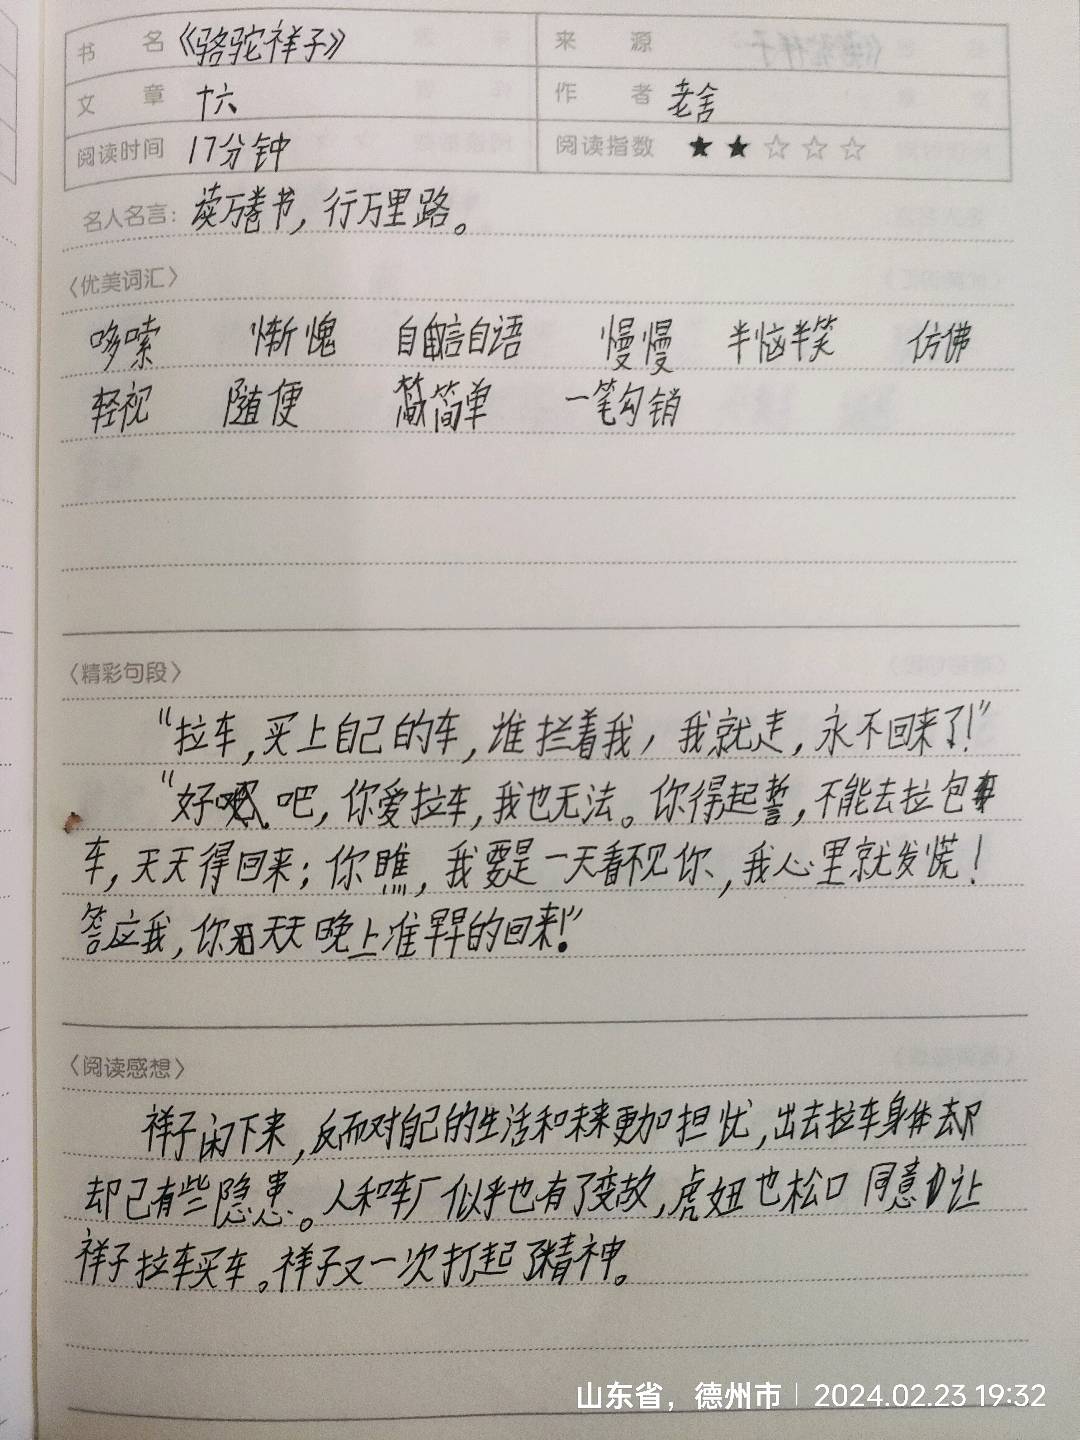 书 名 《骆驼祥子》 来 源
文 章 十六 作 者 老舍
阅读时间 17分钟 阅读指数 ★★☆☆☆
名人名言: 读万卷书, 行万里路。
〈优美词汇〉
哆嗦 惭愧 自言自语 慢慢 半恼半笑 仿佛
轻视 随便 简单 一笔勾销
〈精彩句段〉
“拉车,买上自己的车,谁拦着我,我就走,永不回来了!”
“好吧,你爱拉车,我也无法。你得起誓,不能去拉包
车,天天得回来;你瞧,我要是一天看不见你,我心里就发慌!
答应我,你天天晚上准早早的回来!”
〈阅读感想〉
祥子闲下来,反而对自己的生活和未来更加担忧,出去拉车身体
却已有些隐患。人和车厂似乎也有了变故,虎妞也松口同意让
祥子拉车买车。祥子又一次打起了精神。
山东省，德州市 | 2024.02.23 19:32